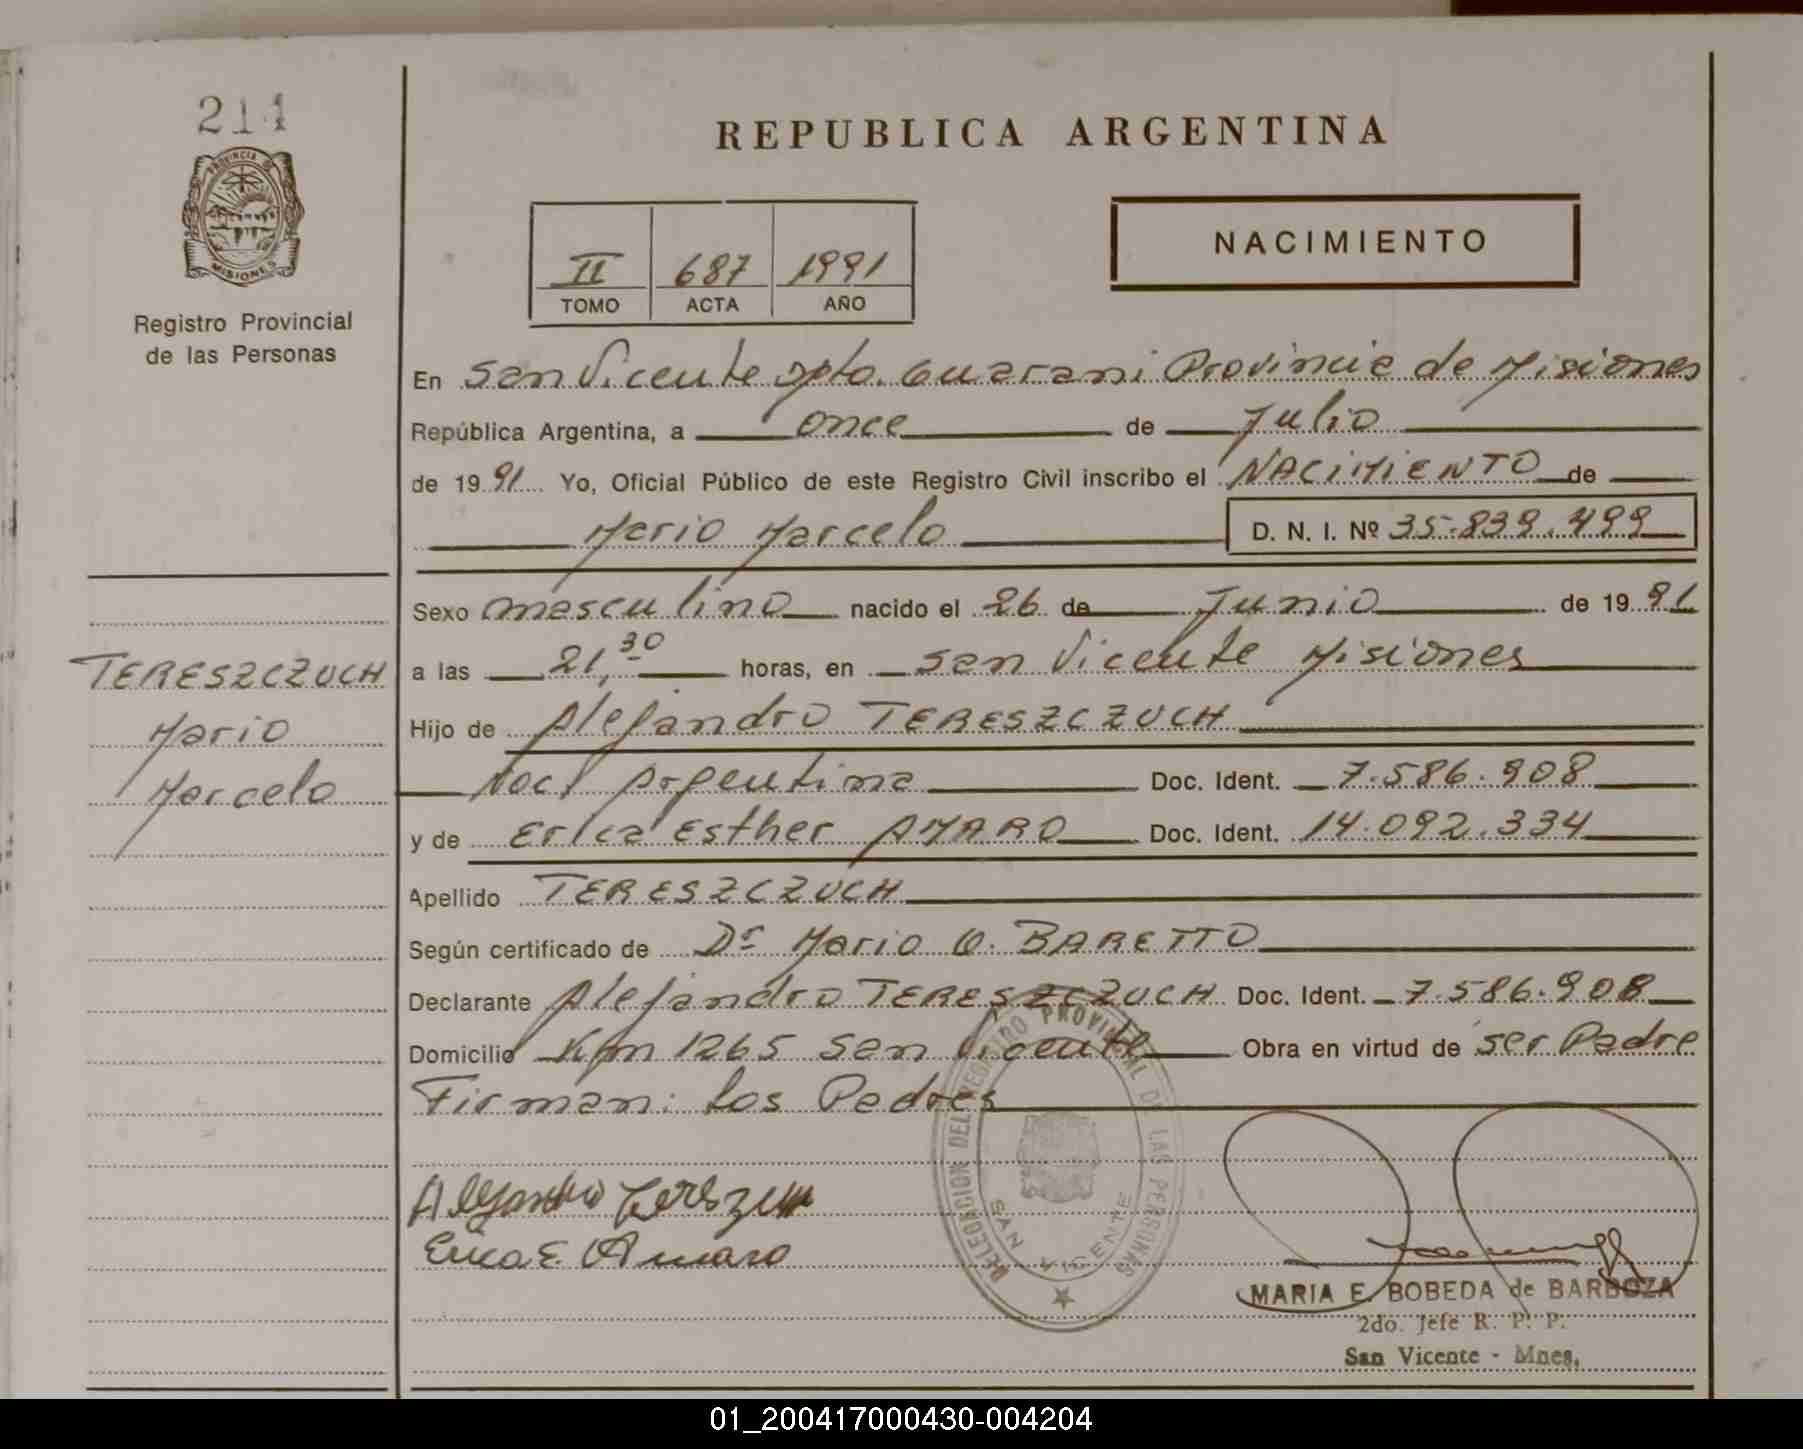 214
PROVINCIA DE
MISIONES
Registro Provincial
de las Personas
REPUBLICA ARGENTINA
NACIMIENTO
II 687 1991
TOMO ACTA AÑO
En San Vicente Dpto. Guarani Provincia de Misiones
República Argentina, a once de Julio
de 1991 Yo, Oficial Público de este Registro Civil inscribo el NACIMIENTO de
Mario Marcelo D. N. I. Nº 35.839.499
Sexo masculino nacido el 26 de Junio de 1991
TERESZCZUCH
Mario
Marcelo
a las 21,30 horas, en San Vicente Misiones
Hijo de Alejandro TERESZCZUCH
Nac. Argentina Doc. Ident. 7.586.908
y de Erica Esther AMARO Doc. Ident. 14.092.334
Apellido TERESZCZUCH
Según certificado de Dr Mario O. BARETTO
Declarante Alejandro TERESZCZUCH Doc. Ident. 7.586.908
Domicilio Km 1265 San Vicente Obra en virtud de ser Padre
Firman: los Padres
DELEGACION DEL REGISTRO PROVINCIAL DE LAS PERSONAS
SAN VICENTE
Alejandro
Erica E. Amaro
MARIA E. BOBEDA de BARBOZA
2do. Jefe R. P. P.
San Vicente - Mnes.
01_200417000430-004204